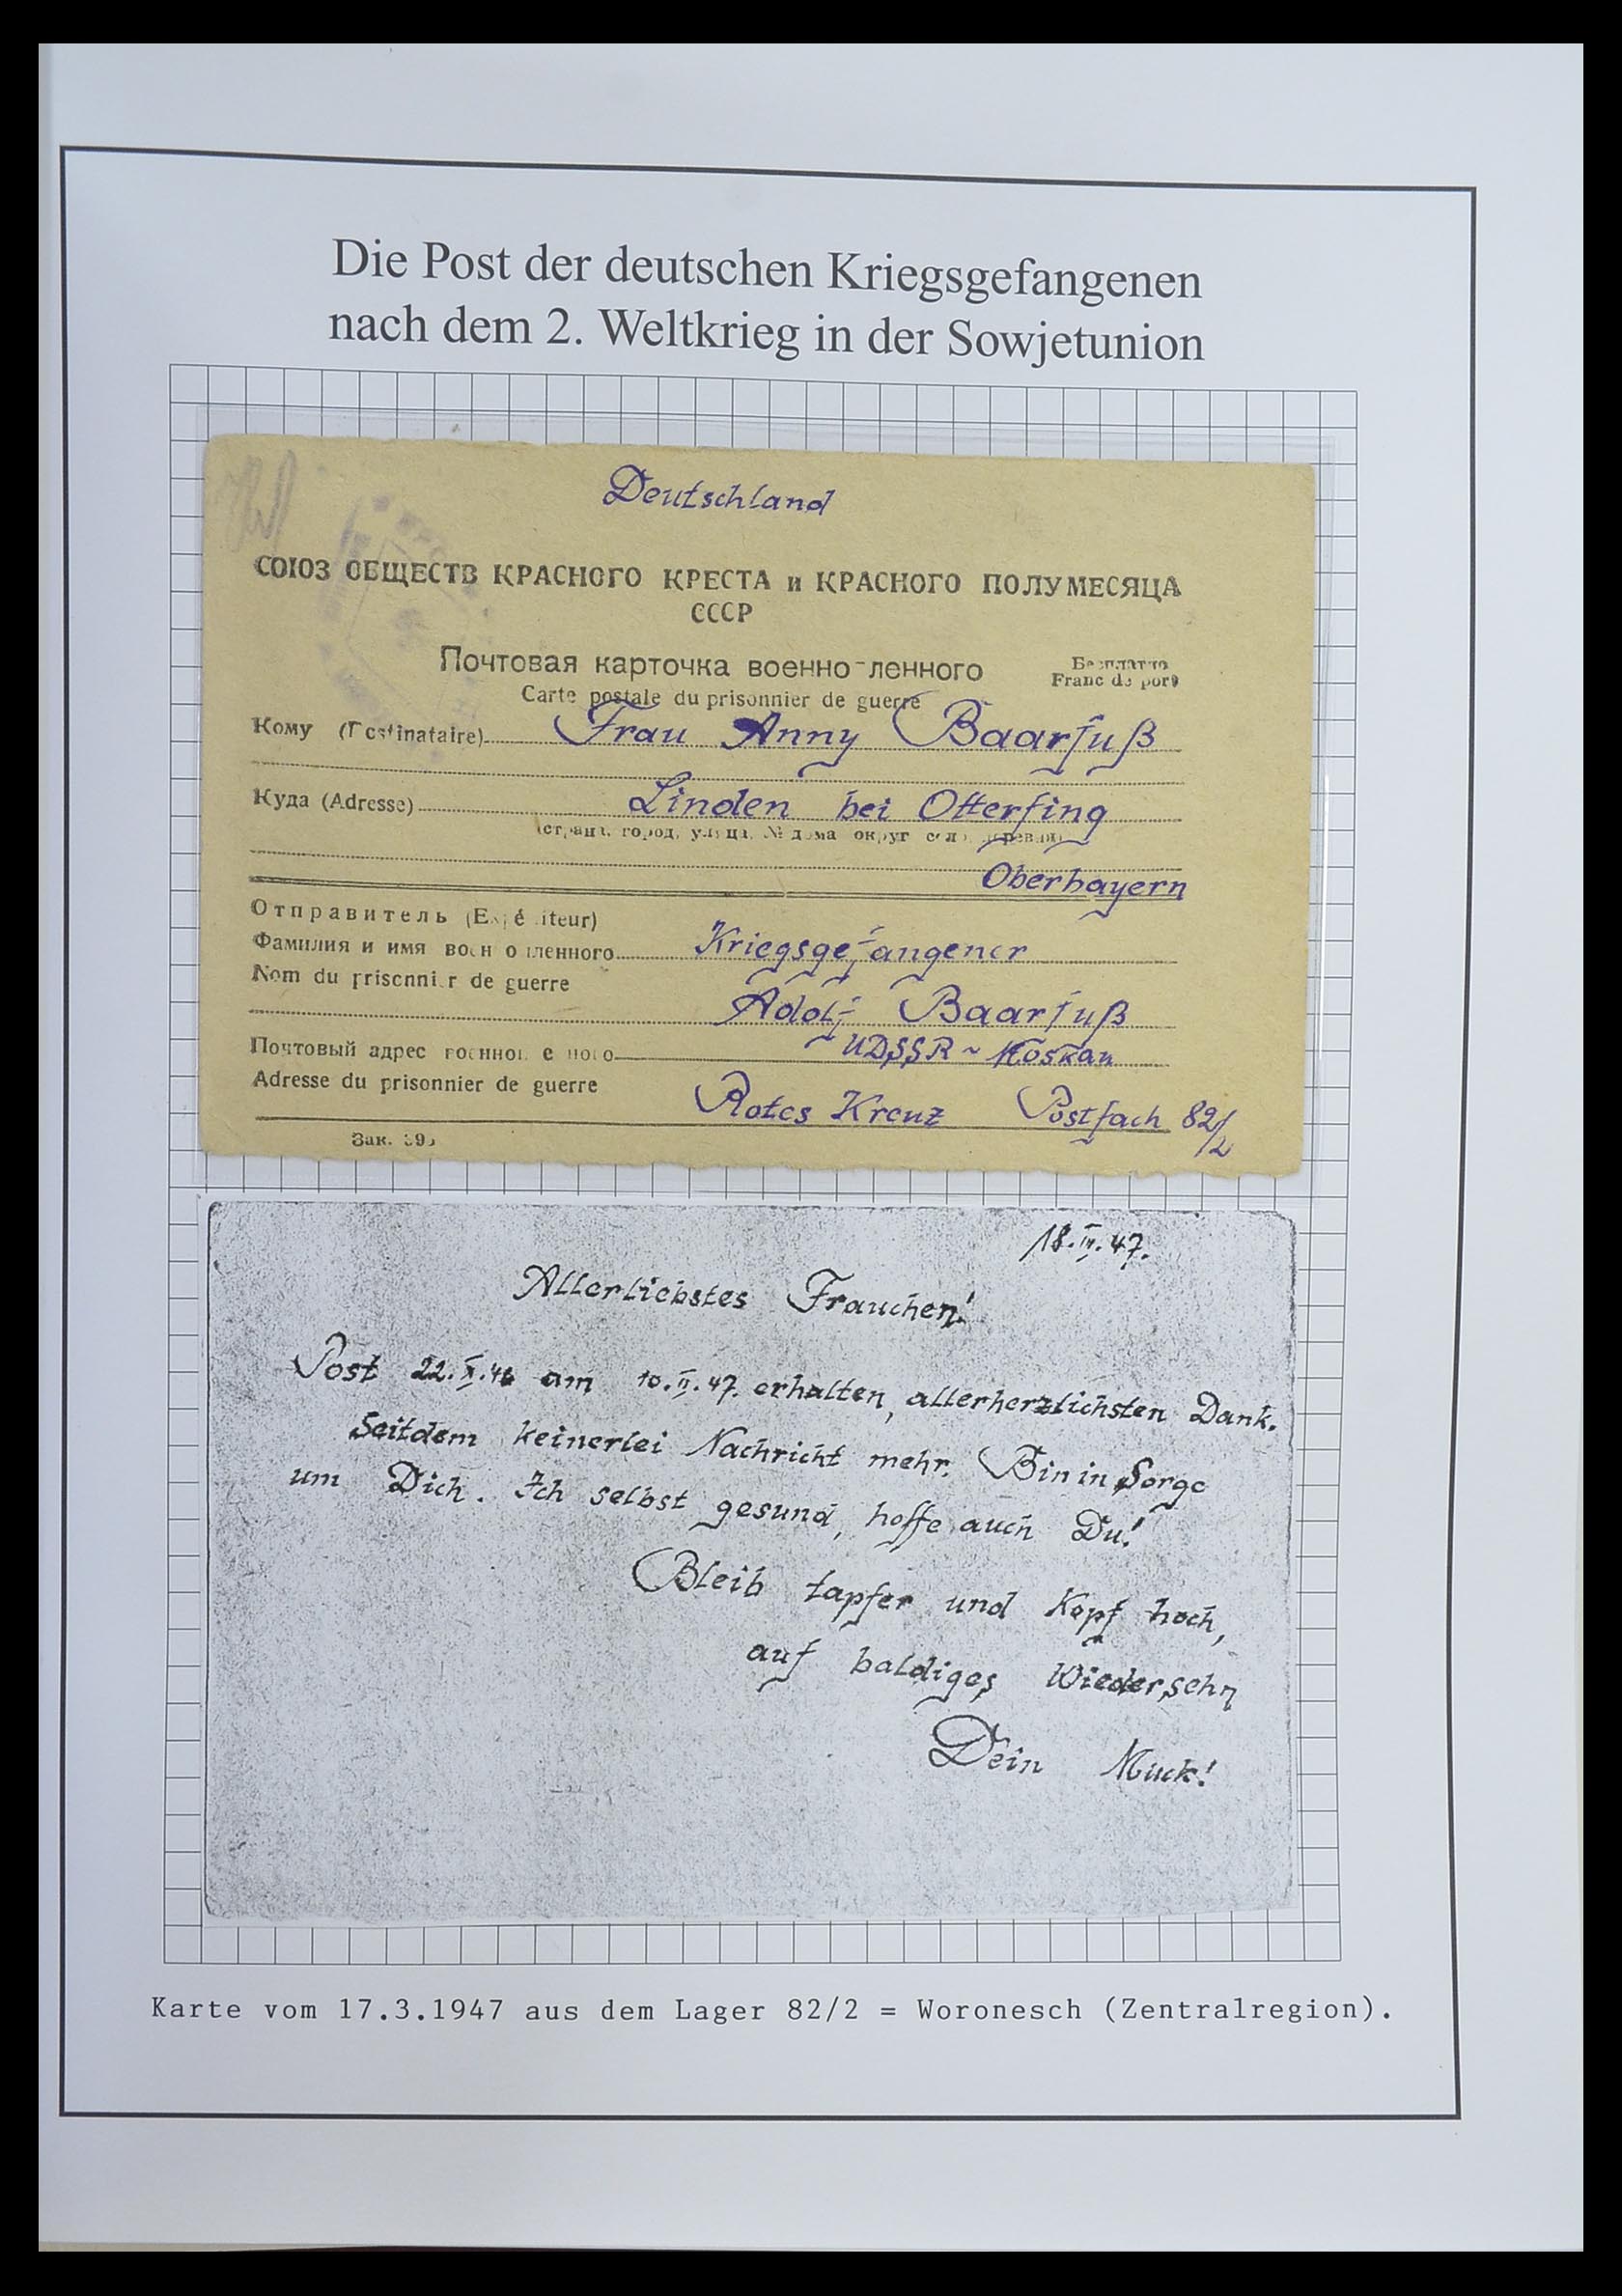 Die Post der deutschen Kriegsgefangenen
nach dem 2. Weltkrieg in der Sowjetunion
Deutschland
СОЮЗ ОБЩЕСТВ КРАСНОГО КРЕСТА и КРАСНОГО ПОЛУМЕСЯЦА
СССР
Почтовая карточка военно-ленного
Бесплатно
Franc de port
Carte postale du prisonnier de guerre
Кому (Destinataire) Frau Anny Baarfuß
Куда (Adresse) Linden bei Otterfing
(страна, город, улица, № дома округ село, деревня)
Oberbayern
Отправитель (Expéditeur)
Фамилия и имя военнопленного Kriegsgefangener
Nom du prisonnier de guerre
Adolf Baarfuß
Почтовый адрес военнопленного UDSSR ~ Moskau
Adresse du prisonnier de guerre Rotes Kreuz Postfach 82/2
Зак.
18.III.47.
Allerliebstes Frauchen!
Post 22.X.46 am 10.II.47. erhalten, allerherzlichsten Dank.
Seitdem keinerlei Nachricht mehr. Bin in Sorge
um Dich. Ich selbst gesund, hoffe auch Du!
Bleib tapfer und Kopf hoch,
auf baldiges Wiedersehn
Dein Muck!
Karte vom 17.3.1947 aus dem Lager 82/2 = Woronesch (Zentralregion).